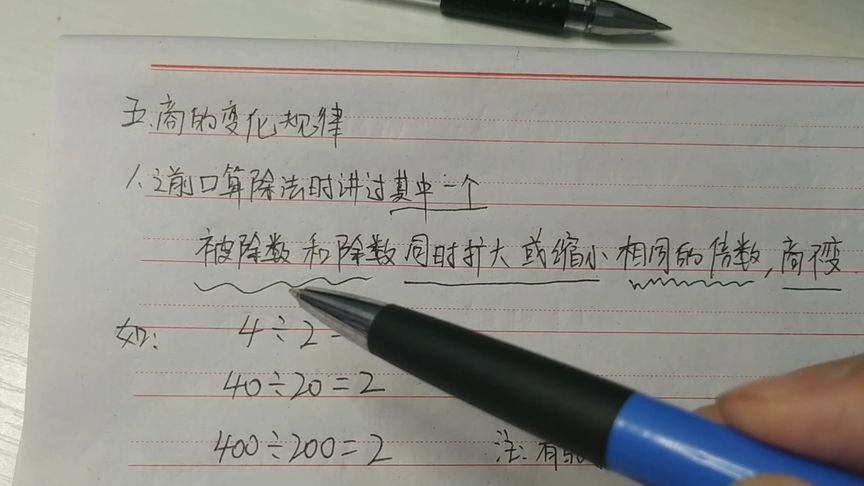 五.商的变化规律
1.之前口算除法时讲过其中一个
被除数和除数同时扩大或缩小相同的倍数,商不变
如: 4÷2=
40÷20=2
400÷200=2 注:有